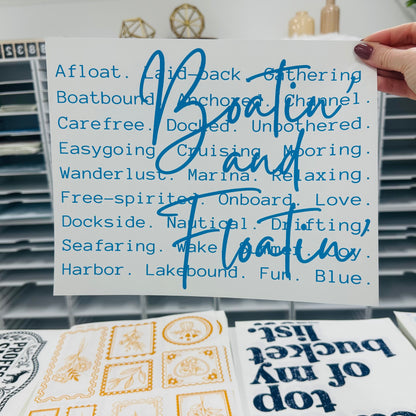 Afloat. Laid-back. Gathering
Boatbound. Anchored. Channel.
Carefree. Docked. Unbothered.
Easygoing. Cruising. Mooring.
Wanderlust. Marina. Relaxing.
Free-spirited. Onboard. Love.
Dockside. Nautical. Drifting.
Seafaring. Wake. Summer. Joy.
Harbor. Lakebound. Fun. Blue.
Boatin'
and
Floatin'
top
bucket
of my
list.